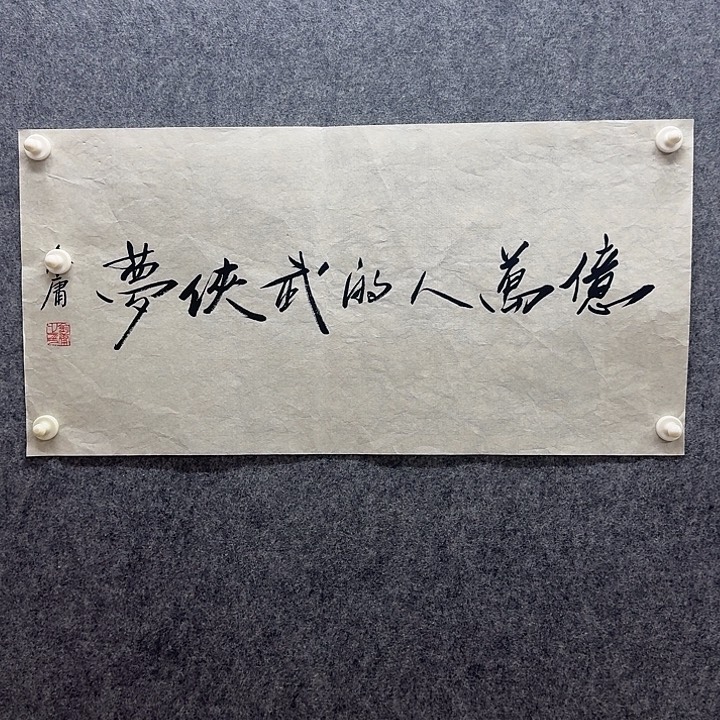 億萬人的武俠夢
庸